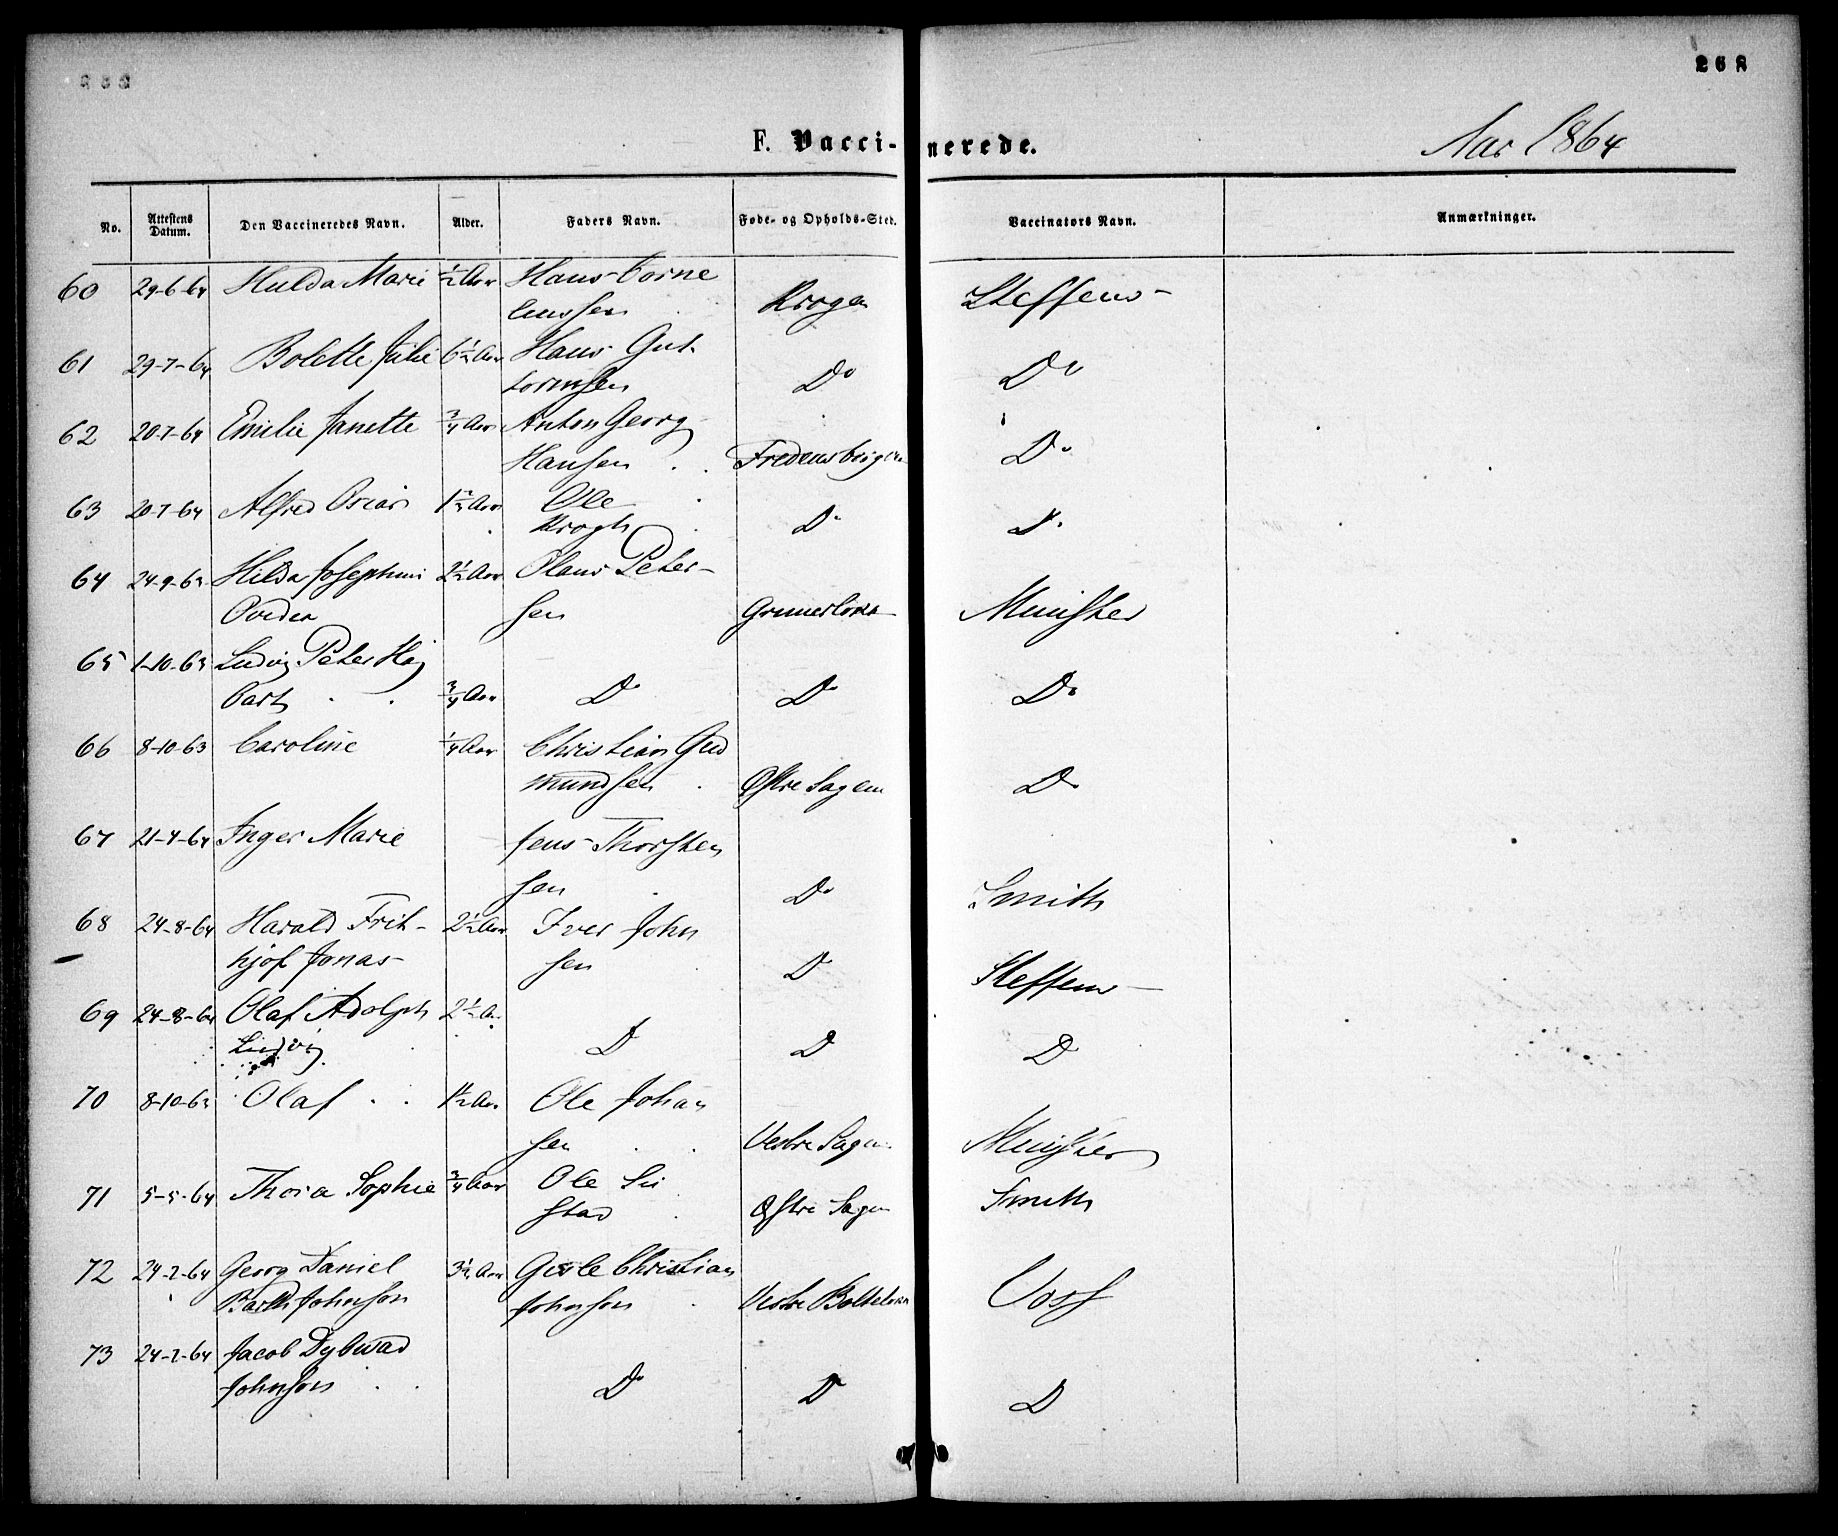 268
F. Vaccinerede.
Aar 1864
No. Attestens Datum. Den Vaccineredes Navn. Alder. Faders Navn. Føde- og Opholds-Sted. Vaccinators Navn. Anmærkninger.
60 29-6-64 Hulda Marie ½ Aar Hans Corne
liussen Krogen Steffens
61 29-7-64 Bolette Julie 6½ Aar Hans Gut
tormsen Do Do
62 20-7-64 Emilie Janette ¾ Aar Anton Georg
Hansen Fredensborgen Do
63 20-7-64 Alfred Oscar Aar Ole
Krogh Do Do
64 24-9-63 Hilda Josephine 2½ Aar Olaus Peter-
Ovidea sen Grunerløkn Münster
65 1-10-63 Ludvig Peter Haj
bart ¾ Aar Do Do Do
66 8-10-63 Caroline ¼ Aar Christian Gud
mundsen Østre Sagene Do
67 21-4-64 Inger Marie Jens Thorsten
sen Do Smith
68 24-8-64 Harald Frit- 2½ Aar Iver John
hjof Jonas sen D Steffens
69 24-8-64 Olaf Adolph 2½ A.
Ludvig D D D
70 8-10-63 Olaf 1½ Aar Ole Johan
sen Vestre Sagen Münster
71 5-5-64 Thora Sophie ¾ Aar Ole Li
stad Østre Sagen Smith
72 24-2-64 Georg Daniel 3½ Aar Christian
Barth Johnson Johnson Vestre Bolteløkn Voss
73 24-2-64 Jacob Dybwad
Johnson Do D D